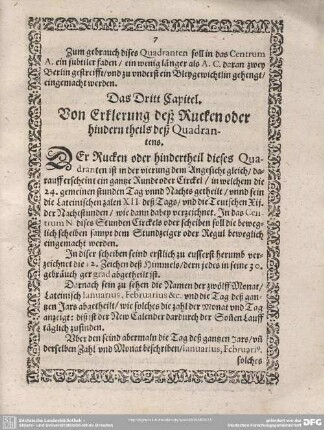 7
Zum gebrauch dises Quadranten soll in das Centrum
A. ein subtiler faden / ein wenig länger als A. C. daran zwey
Berlin gestreifft / vnd zu vnderst ein Bleygewichtlin gehengt /
eingemacht werden.
Das Dritt Capitel.
Von Erklerung deß Rucken oder
hindern theils deß Quadran-
tens.
DEr Rucken oder hindertheil dieses Qua-
dranten ist in der vierung dem Angesicht gleich / da-
rauff erscheint ein gantze Runde oder Circkel / in welchem die
24. gemeinen stunden Tag vnnd Nachts getheilt / vnnd sein
die Lateinischen zalen XII. deß Tags / vnd die Teutschen Xij.
der Nachtstunden / wie dann daher verzeichnet. In das Cen-
trum N. dises Stunden Circkels oder scheiben soll die beweg-
lich scheiben sampt dem Stundzeiger oder Regul beweglich
eingemacht werden.
In diser scheiben seind erstlich zu eusserst herumb ver-
zeichnet die 12. Zeichen deß Himmels / dern jedes in seine 30.
gebräuchige grad abgetheilt ist.
Darnach sein zu sehen die Namen der zwölff Monat /
Lateinisch Ianuarius, Februarius &c. vnd die Tag deß gan-
tzen Jars abgetheilt / wie solches die zahl der Monat vnd Tag
anzeigt: diß ist der New Calender dardurch der Sonen Lauff
täglich zufinden.
Vber den seind abermaln die Tag deß gantzen Jars / vñ
derselben Zahl vnd Monat beschriben / Ianuarius, Februari9,
solches